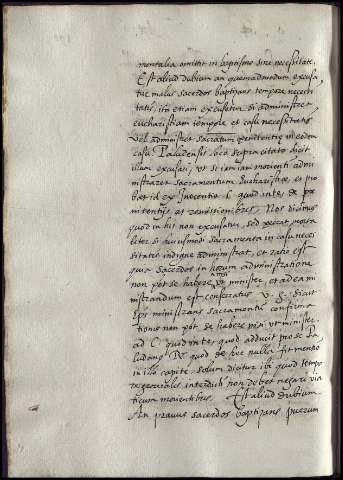 mentalia omittit in baptismo sine necessitate.
Est aliud dubium an quemadmodum excusa
tur malus sacerdos baptizans tempore necessi
tatis, ita etiam excusatur si administret
eucharistiam tempore et casu necessitatis
vel administret sacratum penitentie in eodem
casu. Paludensis loco supra citato dicit
illum excusari, ut si iam morienti admi
nistraret sacramentum Eucharistiae, et pro
bat id ex Inocentio C. quod in te, de pe
nitentijs et remissionibus. Nos dicimus
quod in his non excusatur, sed peccat morta
liter si huiusmodi sacramenta in casu neces
sitatis indigne administrat, et ratio est
quia sacerdos in horum administratione
non pot se habere nisi ut minister, et ad eam
nistrandum est consecratus v. g. dicit
Eps ministrans sacramentu confirma
tionis non pot se habere nisi ut minister.
ad C. quod in te, quod adducit pro se Pa
ludano Dº quod de hoc nulla fit mentio
in illo capite, solum dicitur ibi quod tempo
re generalis interdicti non debet negari via
ticum morientibus. Est aliud dubium
An pravus sacerdos baptizans puerum